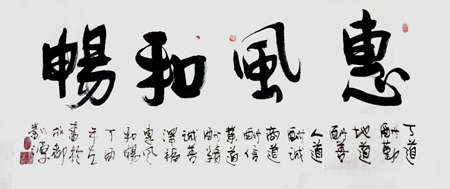 惠風和暢
天道
酬勤
地道
酬善
人道
酬誠
商道
酬信
業道
酬精
誠善
澤福
惠風
和暢
丁酉
書於
成都